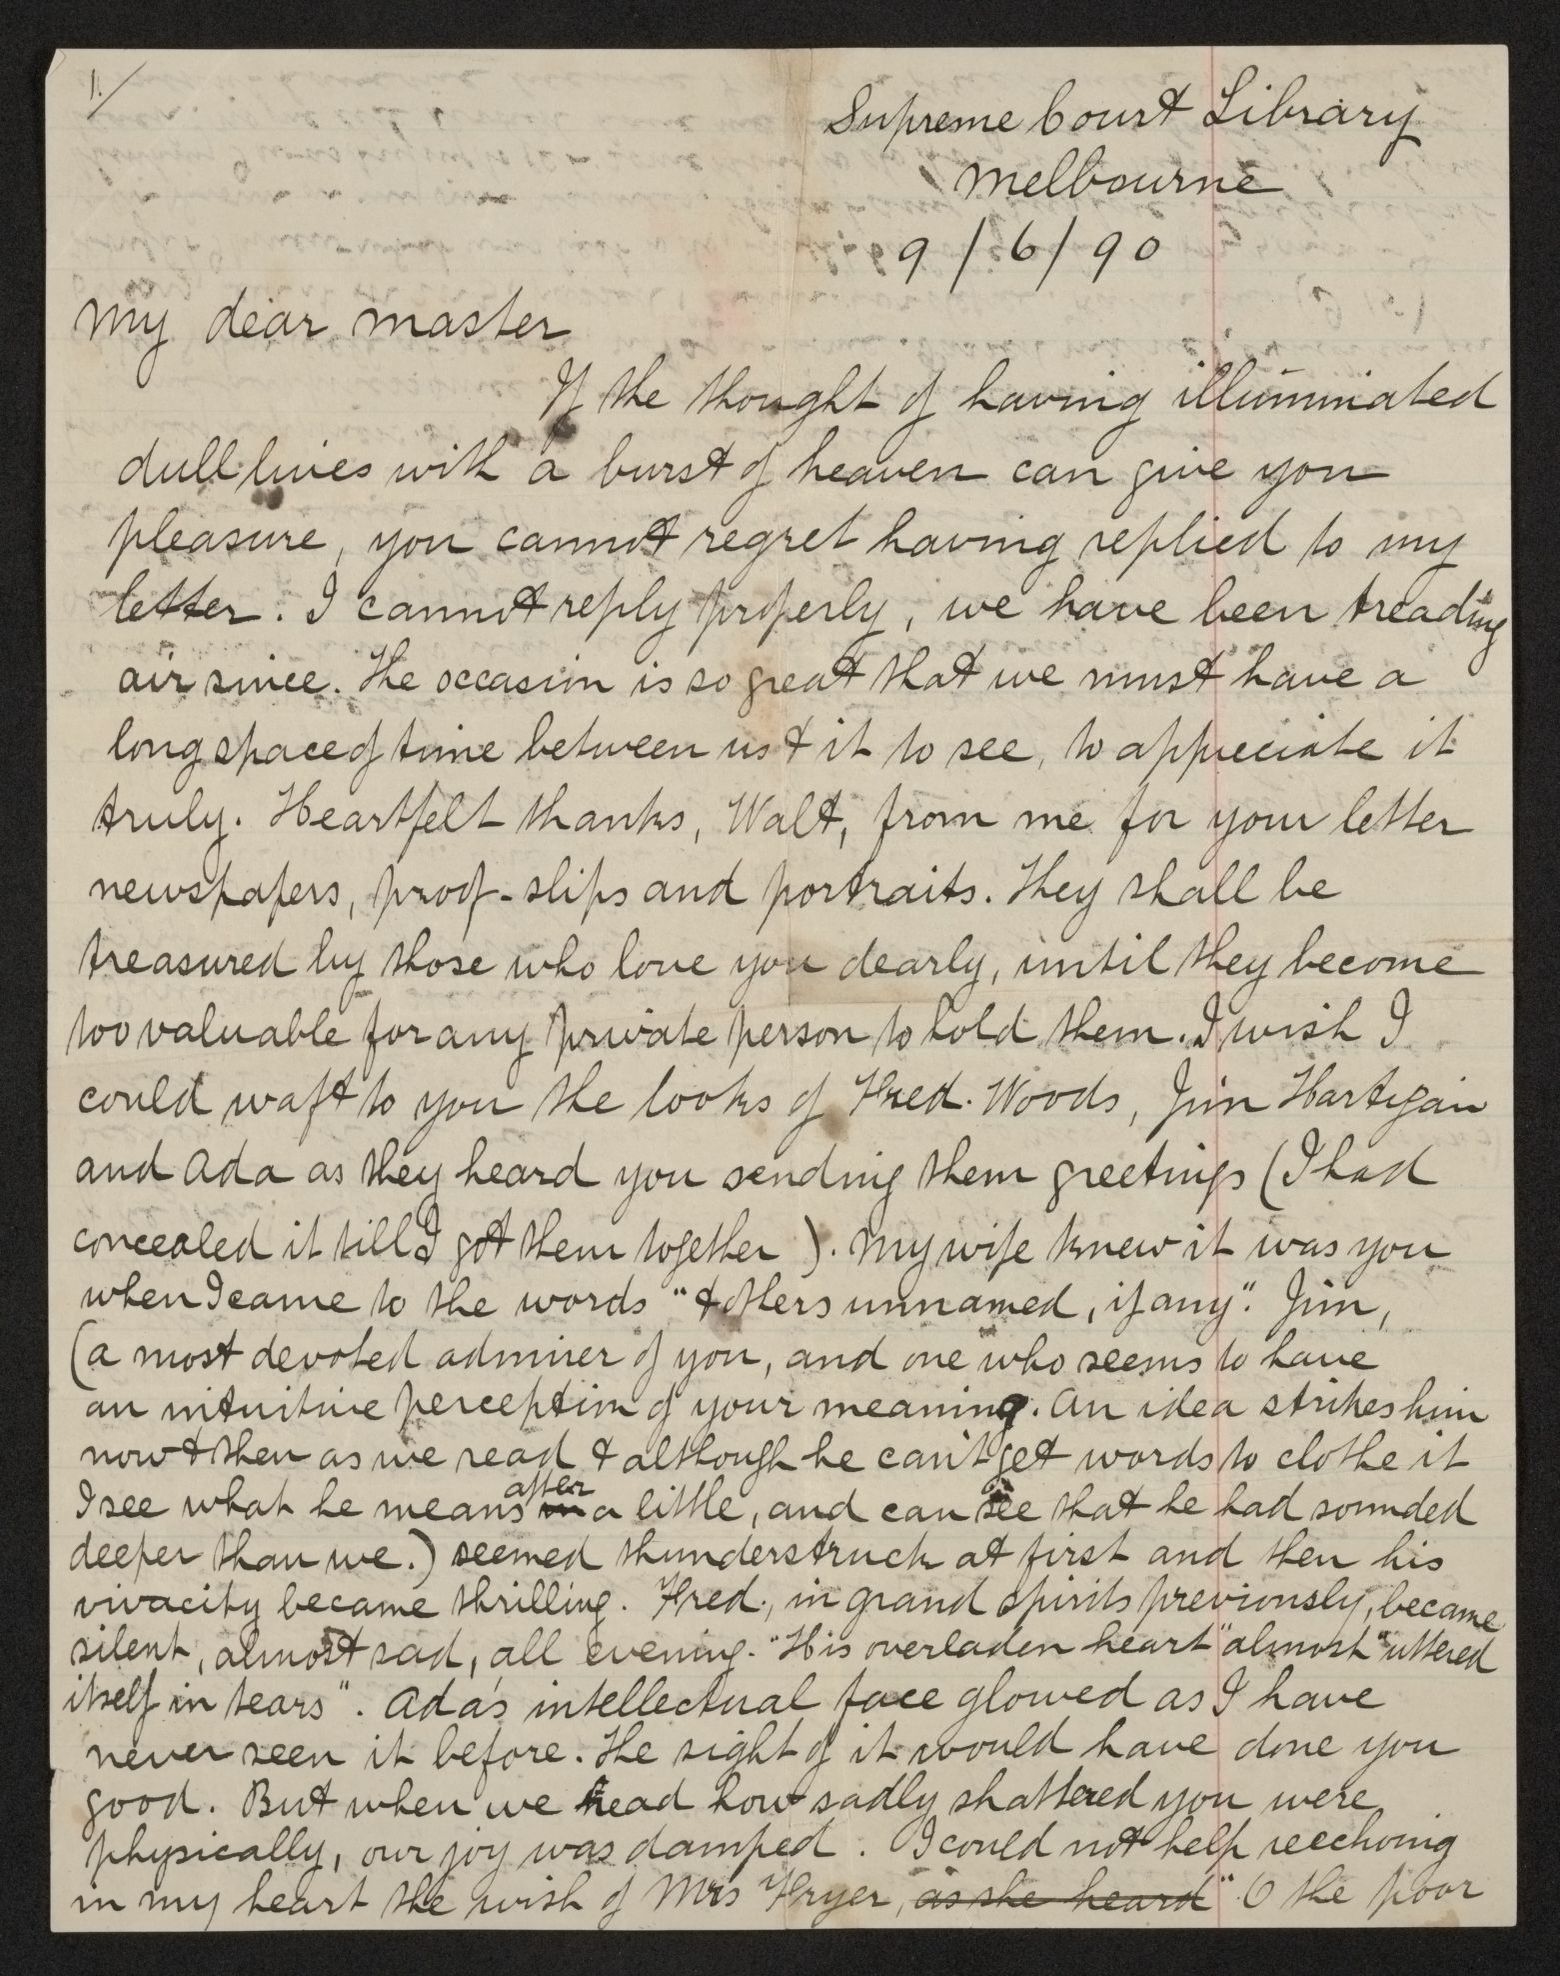 1/
Supreme Court Library
Melbourne
9/6/90
My dear master
If the thought of having illuminated
dull lives with a burst of heaven can give you
pleasure, you cannot regret having replied to my
letter. I cannot reply properly, we have been treading
air since. The occasion is so great that we must have a
long space of time between us & it to see, to appreciate it
truly. Heartfelt thanks, Walt, from me for your letter
newspapers, proof-slips and portraits. They shall be
treasured by those who love you dearly, until they become
too valuable for any private person to hold them. I wish I
could waft to you the looks of Fred. Woods, Jim Hartigan
and Ada as they heard you sending them greetings (I had
concealed it till I got them together). My wife knew it was you
when I came to the words "& others unnamed, if any". Jim,
(a most devoted admirer of you, and one who seems to have
an intuitive perception of your meaning. An idea strikes him
now & then as we read & although he can't get words to clothe it
I see what he means in after a little, and can see that he had sounded
deeper than we.) seemed thunderstruck at first and then his
vivacity became thrilling. Fred., in grand spirits previously, became
silent, almost sad, all evening. "His overladen heart" almost "uttered
itself in tears". Ada's intellectual face glowed as I have
never seen it before. The sight of it would have done you
good. But when we read how sadly shattered you were
physically, our joy was damped. I could not help reechoing
in my heart the wish of Mrs Fryer, as she heard "O the poor